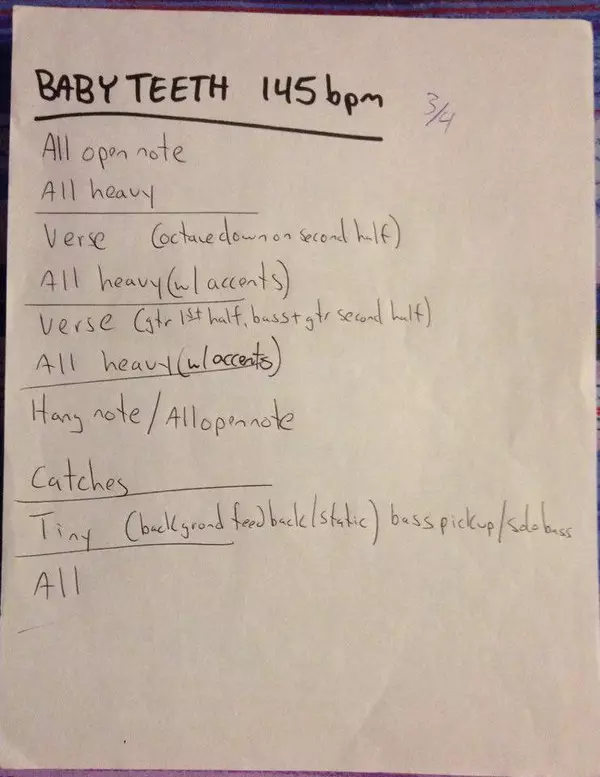 BABY TEETH 145 bpm 3/4
All open note
All heavy
Verse (octave down on second half)
All heavy (w/ accents)
Verse (gtr 1st half, bass + gtr second half)
All heavy (w/ accents)
Hang note / All open note
Catches
Tiny (backgrond feedback/static) bass pickup/solo bass
All